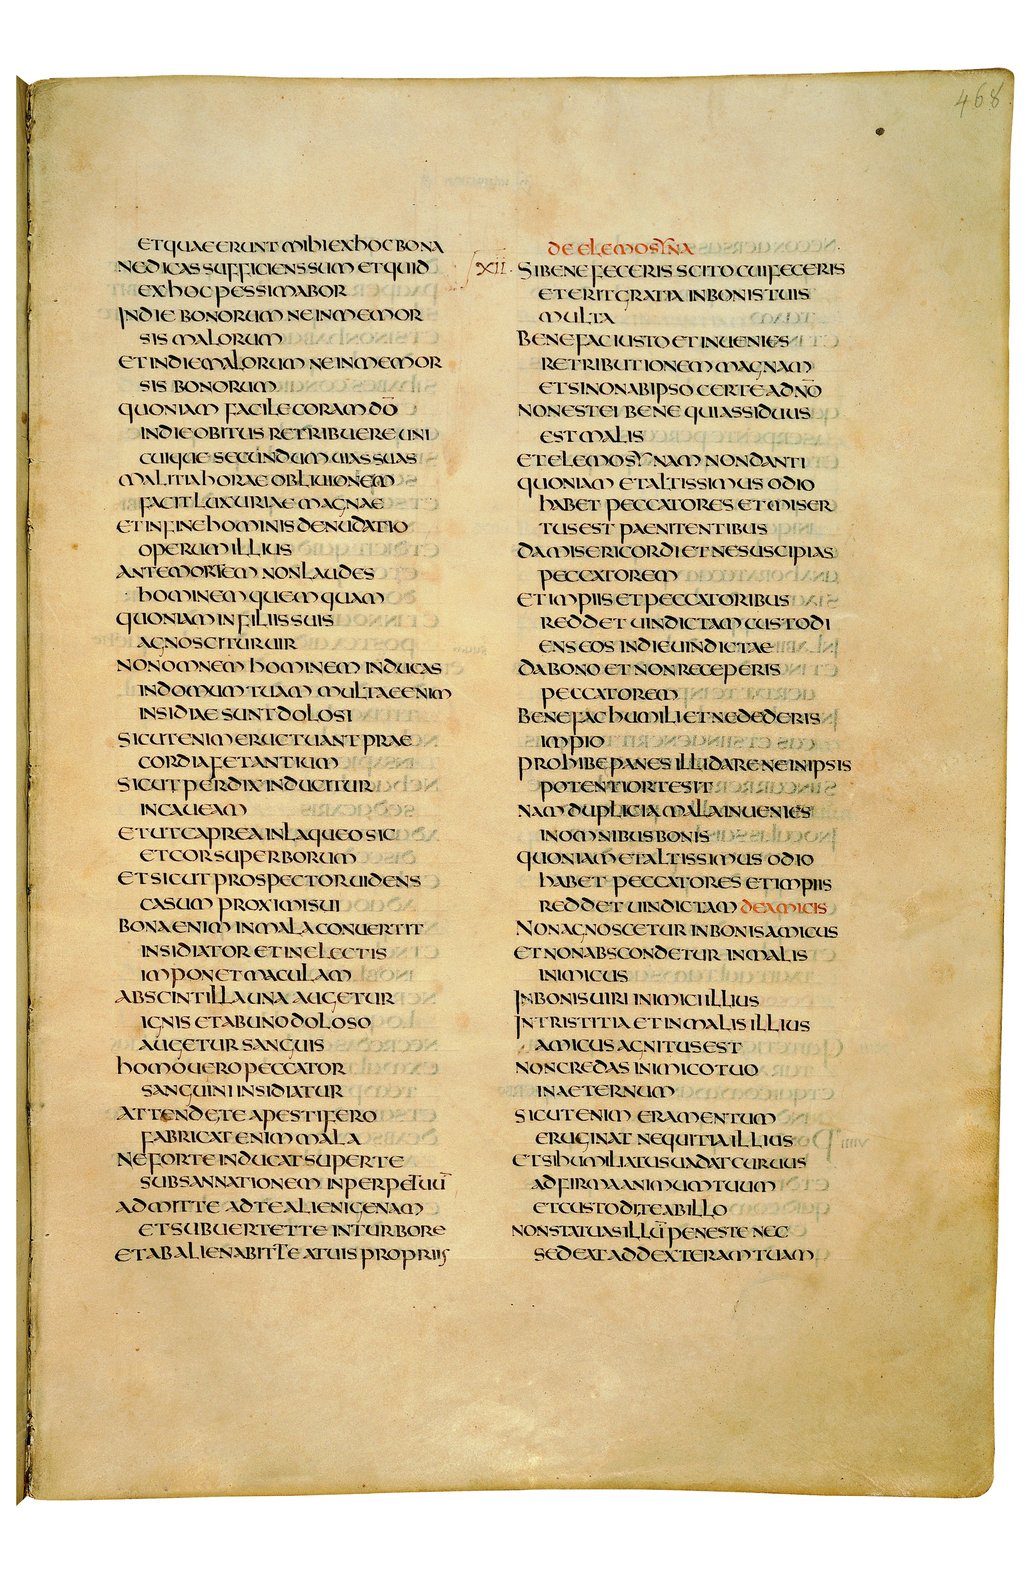 468
ETQUAEERUNT MIHI EXHOC BONA
NEDICAS SUFFICIENS SUM ET QUID
EXHOC PESSIMABOR
IN DIE BONORUM NE INMEMOR
SIS MALORUM
ET IN DIE MALORUM NE INMEMOR
SIS BONORUM
QUONIAM FACILE CORAM DŌ
IN DIE OBITUS RETRIBUERE UNI
CUIQUE SECUNDUM UIAS SUAS
MALITIA HORAE OBLIUIONEM
FACIT LUXURIAE MAGNAE
ET IN FINE HOMINIS DENUDATIO
OPERUM ILLIUS
ANTE MORTEM NON LAUDES
HOMINEM QUEMQUAM
QUONIAM IN FILIIS SUIS
AGNOSCITUR UIR
NON OMNEM HOMINEM INDUCAS
IN DOMUM TUAM MULTAE ENIM
INSIDIAE SUNT DOLOSI
SICUT ENIM ERUCTUANT PRAE
CORDIA FETANTIUM
SICUT PERDIX INDUCITUR
IN CAUEAM
ET UT CAPREA IN LAQUEO SIC
ET COR SUPERBORUM
ET SICUT PROSPECTOR UIDENS
CASUM PROXIMI SUI
BONA ENIM IN MALA CONUERTIT
INSIDIATOR ET IN ELECTIS
IMPONET MACULAM
AB SCINTILLA UNA AUGETUR
IGNIS ET AB UNO DOLOSO
AUGETUR SANGUIS
HOMO UERO PECCATOR
SANGUINI INSIDIATUR
ATTENDE TE A PESTIFERO
FABRICAT ENIM MALA
NE FORTE INDUCAT SUPER TE
SUBSANNATIONEM IN PERPETUŪ
ADMITTE AD TE ALIENIGENAM
ET SUBUERTET TE IN TURBORE
ET ABALIENABIT TE A TUIS PROPRIIS
DE ELEMOSYNA
XII· SI BENE FECERIS SCITO CUI FECERIS
ET ERIT GRATIA IN BONIS TUIS
MULTA
BENEFAC IUSTO ET INUENIES
RETRIBUTIONEM MAGNAM
ET SI NON AB IPSO CERTE A DNŌ
NON EST EI BENE QUI ASSIDUUS
EST MALIS
ET ELEMOSYNAM NON DANTI
QUONIAM ET ALTISSIMUS ODIO
HABET PECCATORES ET MISER
TUS EST PAENITENTIBUS
DA MISERICORDI ET NE SUSCIPIAS
PECCATOREM
ET IMPIIS ET PECCATORIBUS
REDDET UINDICTAM CUSTODI
ENS EOS IN DIE UINDICTAE
DA BONO ET NON RECEPERIS
PECCATOREM
BENEFAC HUMILI ET NE DEDERIS
IMPIO
PROHIBE PANES ILLI DARE NE IN IPSIS
POTENTIOR TE SIT
NAM DUPLICIA MALA INUENIES
IN OMNIBUS BONIS
QUONIAM ET ALTISSIMUS ODIO
HABET PECCATORES ET IMPIIS
REDDET UINDICTAM DE AMICIS
NON AGNOSCETUR IN BONIS AMICUS
ET NON ABSCONDETUR IN MALIS
INIMICUS
IN BONIS UIRI INIMICI ILLIUS
IN TRISTITIA ET IN MALIS ILLIUS
AMICUS AGNITUS EST
NON CREDAS INIMICO TUO
IN AETERNUM
SICUT ENIM ERAMENTUM
ERUGINAT NEQUITIA ILLIUS
ET SI HUMILIATUS UADAT CURUUS
ADFIRMA ANIMUM TUUM
ET CUSTODI TE AB ILLO
NON STATUAS ILLŪ PENES TE NEC
SEDEAT AD DEXTERAM TUAM